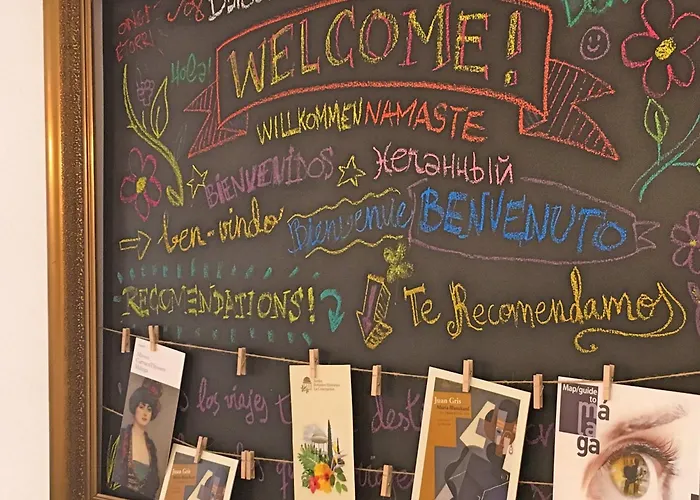 ONGI
ETORRI
WELCOME!
Hola!
WILLKOMMEN NAMASTE
BIENVENIDOS
Нечанный
ben-vindo
Bienvenue
BENVENUTO
RECOMENDATIONS!
Te Recomendamos
los viajes
Juan Gris
María Blanchard
Juan Gris
Map/guide
to
málaga